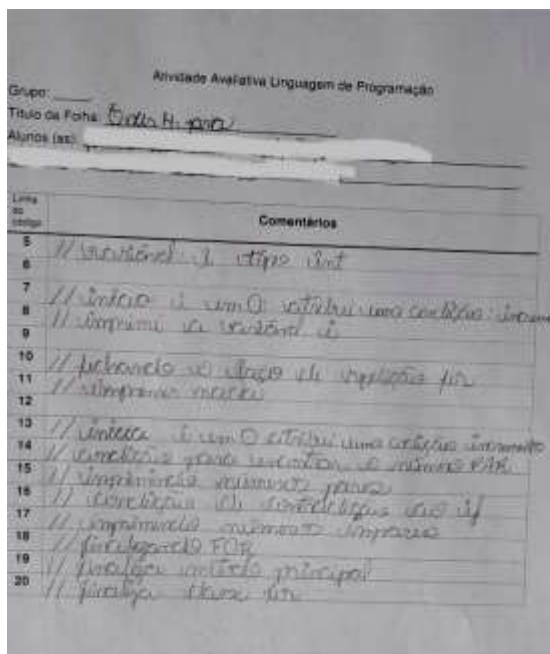 Atividade Avaliativa Linguagem de Programação
Grupo:
Título da Folha:
Alunos (as):
Linha do código
Comentários
5
6 // variável i tipo int
7
8 // inicia i em 0 atribui uma condição:
9 // imprimi a variável i
10
11 // fechando o laço de repetição for
12 // imprimir
13
14 // inicia i em 0 atribui uma condição incremento
15 // condição para encontrar o número PAR
16 // imprimindo números pares
17 // condição de if
18 // imprimindo números impares
19 // finalizando FOR
20 // finaliza método principal
// finaliza classe for